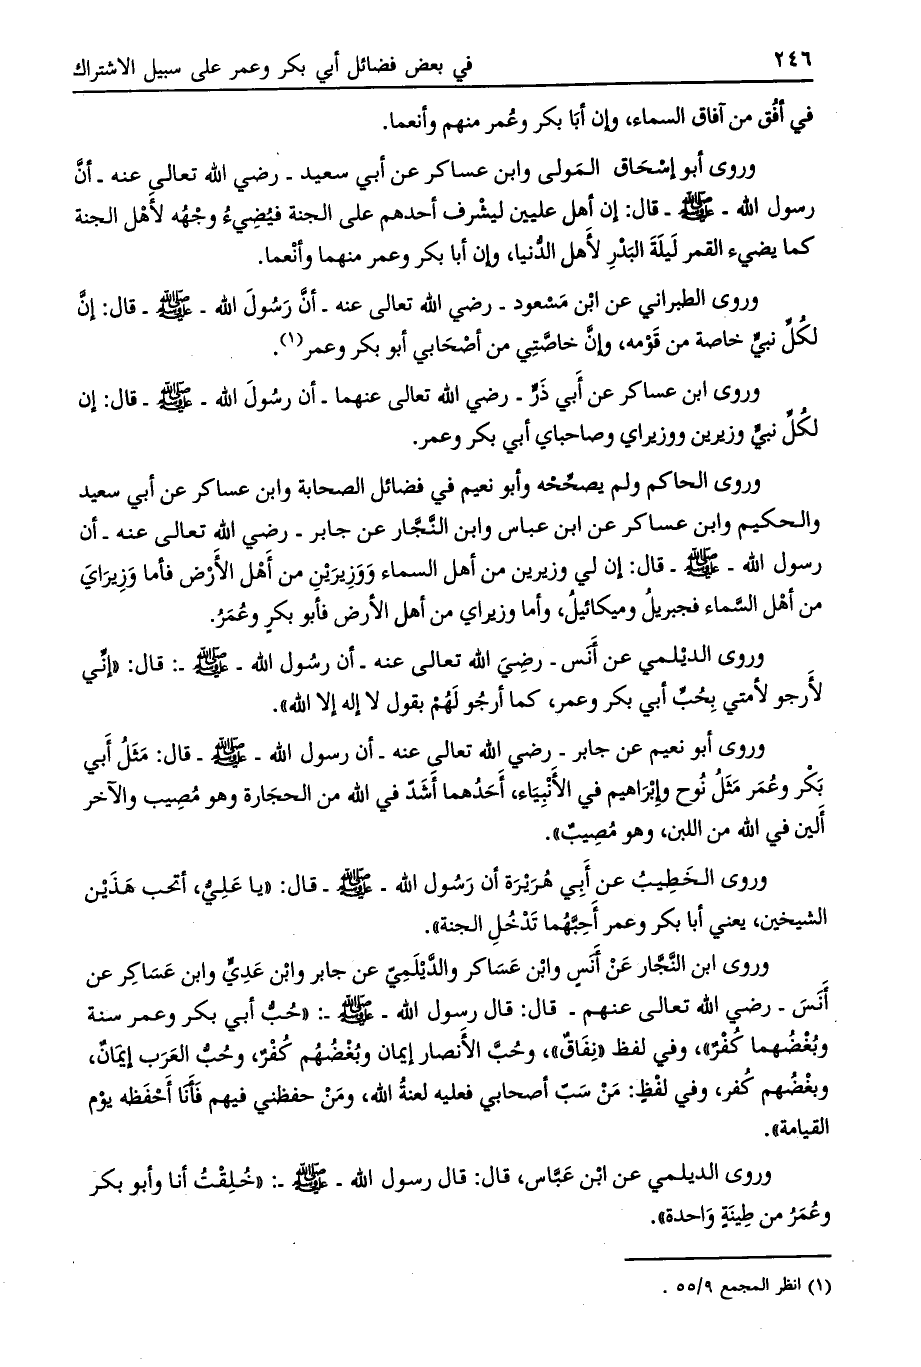 ٢٤٦ في بعض فضائل أبي بكر وعمر على سبيل الاشتراك
في أفُق من آفاق السماء، وإن أبَا بكر وعُمر منهم وأنعما.
وروى أبو إسْحَاق المَولى وابن عساكر عن أبي سعيد ـ رضي الله تعالى عنه ـ أنَّ
رسول الله ـ ﷺ ـ قال: إن أهل عليين ليشْرف أحدهم على الجنة فيُضِيءُ وجْهُه لأهْل الجنة
كما يضيء القمر لَيلَةَ البَدْرِ لأهل الدُّنيا، وإن أبا بكر وعمر منهما وأنْعما.
وروى الطبراني عن ابْن مَسْعود ـ رضي الله تعالى عنه ـ أنَّ رَسُولَ الله ـ ﷺ ـ قال: إنَّ
لكُلِّ نبيٍّ خاصة من قَوْمه، وإنَّ خاصَّتِي من أصْحَابي أبو بكر وعمر(١).
وروى ابن عساكر عن أبي ذَرٍّ ـ رضي الله تعالى عنهما ـ أن رسُولَ الله ـ ﷺ ـ قال: إن
لكُلِّ نبيٍّ وزيرين ووزيراي وصاحباي أبي بكر وعمر.
وروى الحاكم ولم يصحِّحْه وأبو نعيم في فضائل الصحابة وابن عساكر عن أبي سعيد
والحكيم وابن عساكر عن ابن عباس وابن النَّجَّار عن جابر ـ رضي الله تعالى عنه ـ أن
رسول الله ـ ﷺ ـ قال: إن لي وزيرين من أهل السماء وَوَزِيرَيْنِ من أهل الأرْض فأما وَزِيرَايَ
من أهْل السَّماء فجبريلُ وميكائيلُ، وأما وزيراي من أهل الأرض فأبو بكرٍ وعُمَرُ.
وروى الديْلمي عن أَنَس ـ رضِيَ الله تعالى عنه ـ أن رسُول الله ـ ﷺ ـ: قال: «إنِّي
لأرجو لأمتي بِحُبِّ أبي بكر وعمر، كما أرجُو لَهُمْ بقول لا إله إلا الله».
وروى أبو نعيم عن جابر ـ رضي الله تعالى عنه ـ أن رسول الله ـ ﷺ ـ قال: مَثَلُ أبي
بَكْر وعُمَر مَثَلُ نُوح وإبْرَاهيم في الأنْبِيَاء، أحَدُهما أشَدّ في الله من الحجَارة وهو مُصِيب والآخر
ألين في الله من اللبن، وهو مُصِيبٌ».
وروى الخَطِيبُ عن أبِي هُرَيْرَة أن رَسُول الله ـ ﷺ ـ قال: «يا عَلِيُّ، أتحب هَذَيْن
الشيخين، يعني أبا بكر وعمر أحِبَّهُما تَدْخُلِ الجنة».
وروى ابن النَّجَّار عَنْ أنَسٍ وابْن عَسَاكر والدَّيْلَمِيّ عن جابر وابْن عَدِيٍّ وابن عَسَاكِر عن
أَنَسَ ـ رضي الله تعالى عنهم ـ قال: قال رسول الله ـ ﷺ ـ: «حُبُّ أبي بكر وعمر سنة
وبُغْضُهما كُفْرٌ»، وفي لفظ «نِفَاقٌ»، وحُبَّ الأنصار إيمان وبُغْضُهُم كُفْرٌ، وحبُّ العَرَب إيمَان،
وبغْضُهم كُفر، وفي لفْظٍ: مَنْ سَبّ أصحابي فعليه لعنةُ الله، ومَنْ حفظني فيهم فَأَنَا أَحْفَظه يوْم
القيامة».
وروى الديلمي عن ابْن عَبَّاس، قال: قال رسول الله ـ ﷺ ـ: «خُلِقْتُ أنا وأبو بكر
وعُمَرُ من طِينَةٍ وَاحدة».
(١) انظر المجمع ٥٥/٩ .